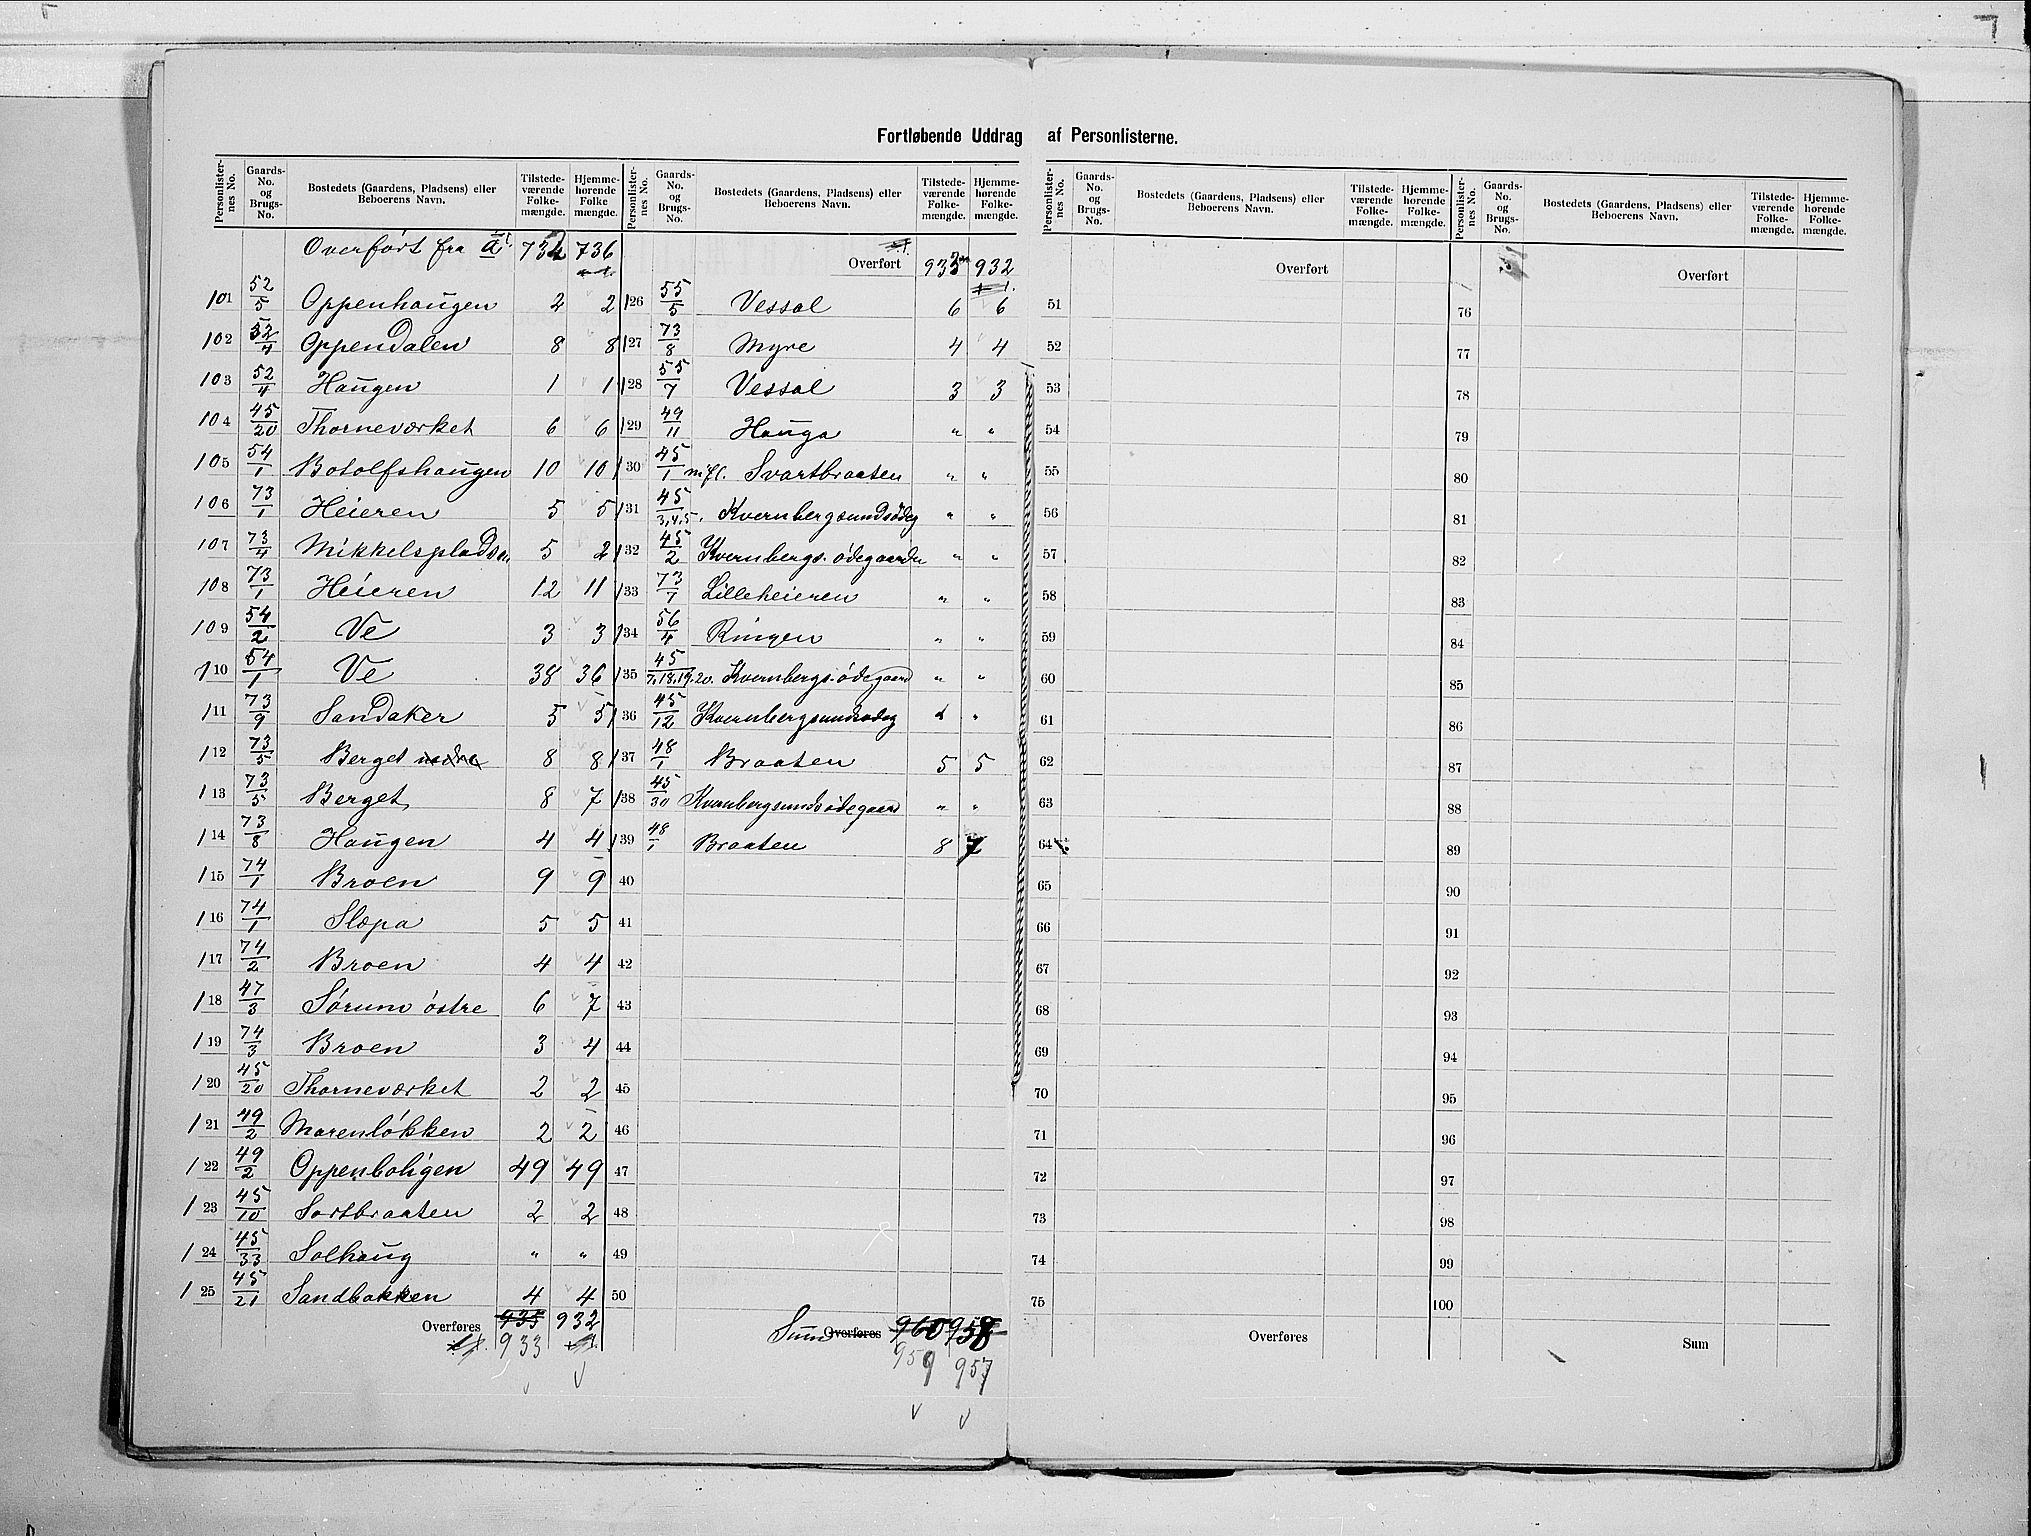 Fortløbende Uddrag af Personlisterne.
Personlister- nes No. | Gaards- No. og Brugs- No. | Bostedets (Gaardens, Pladsens) eller Beboerens Navn. | Tilstede- værende Folke- mængde. | Hjemme- hørende Folke mængde.
Overført fra a. 734 736
101 52/5 Oppenhaugen 2 2
102 52/4 Oppendalen 8 8
103 52/4 Haugen 1 1
104 45/20 Thorneværket 6 6
105 54/1 Botolfshaugen 10 10
106 73/1 Heieren 5 5
107 73/4 Mikkelspladsen 5 2
108 73/1 Heieren 12 11
109 54/2 Ve 3 3
110 54/1 Ve 38 36
111 73/9 Sandaker 5 5
112 73/5 Berget nedre 8 8
113 73/5 Berget 8 7
114 73/8 Haugen 4 4
115 74/1 Broen 9 9
116 74/1 Slæpa 5 5
117 74/2 Broen 4 4
118 47/3 Sørum østre 6 7
119 74/3 Broen 3 4
120 45/20 Thorneværket 2 2
121 49/2 Marenløkken 2 2
122 49/2 Oppenboligen 49 49
123 45/10 Sortbraaten 2 2
124 45/33 Solhaug " "
125 45/21 Sandbakken 4 4
Overføres 935 932
933
Personlister- nes No. | Gaards- No. og Brugs- No. | Bostedets (Gaardens, Pladsens) eller Beboerens Navn. | Tilstede- værende Folke- mængde. | Hjemme- hørende Folke- mængde.
Overført 933 932
126 55/5 Vessal 6 6
127 73/8 Myre 4 4
128 55/7 Vessal 3 3
129 49/11 Hauga " "
130 45/1 m.fl. Svartbraaten " "
131 45/3,4,5. Kvernbergsundsødeg " "
132 45/2 Kvernbergs.ødegaarden " "
133 73/7 Lilleheieren " "
134 56/4 Ringen " "
135 45/7,18,19.20. Kvernbergs.ødegaard " "
136 45/12 Kvernbergsundsødeg " "
137 48/1 Braaten 5 5
138 45/30 Kvernbergsundsødegaard " "
139 48/1 Braaten 8 7
40
41
42
43
44
45
46
47
48
49
50
Sum Overføres 960 958
959 957
Personlister- nes No. | Gaards- No. og Brugs- No. | Bostedets (Gaardens, Pladsens) eller Beboerens Navn. | Tilstede- værende Folke- mængde. | Hjemme- hørende Folke- mængde.
Overført
51
52
53
54
55
56
57
58
59
60
61
62
63
64
65
66
67
68
69
70
71
72
73
74
75
Overføres
Personlister- nes No. | Gaards- No. og Brugs- No. | Bostedets (Gaardens, Pladsens) eller Beboerens Navn. | Tilstede- værende Folke- mængde. | Hjemme- hørende Folke- mængde.
Overført
76
77
78
79
80
81
82
83
84
85
86
87
88
89
90
91
92
93
94
95
96
97
98
99
100
Sum